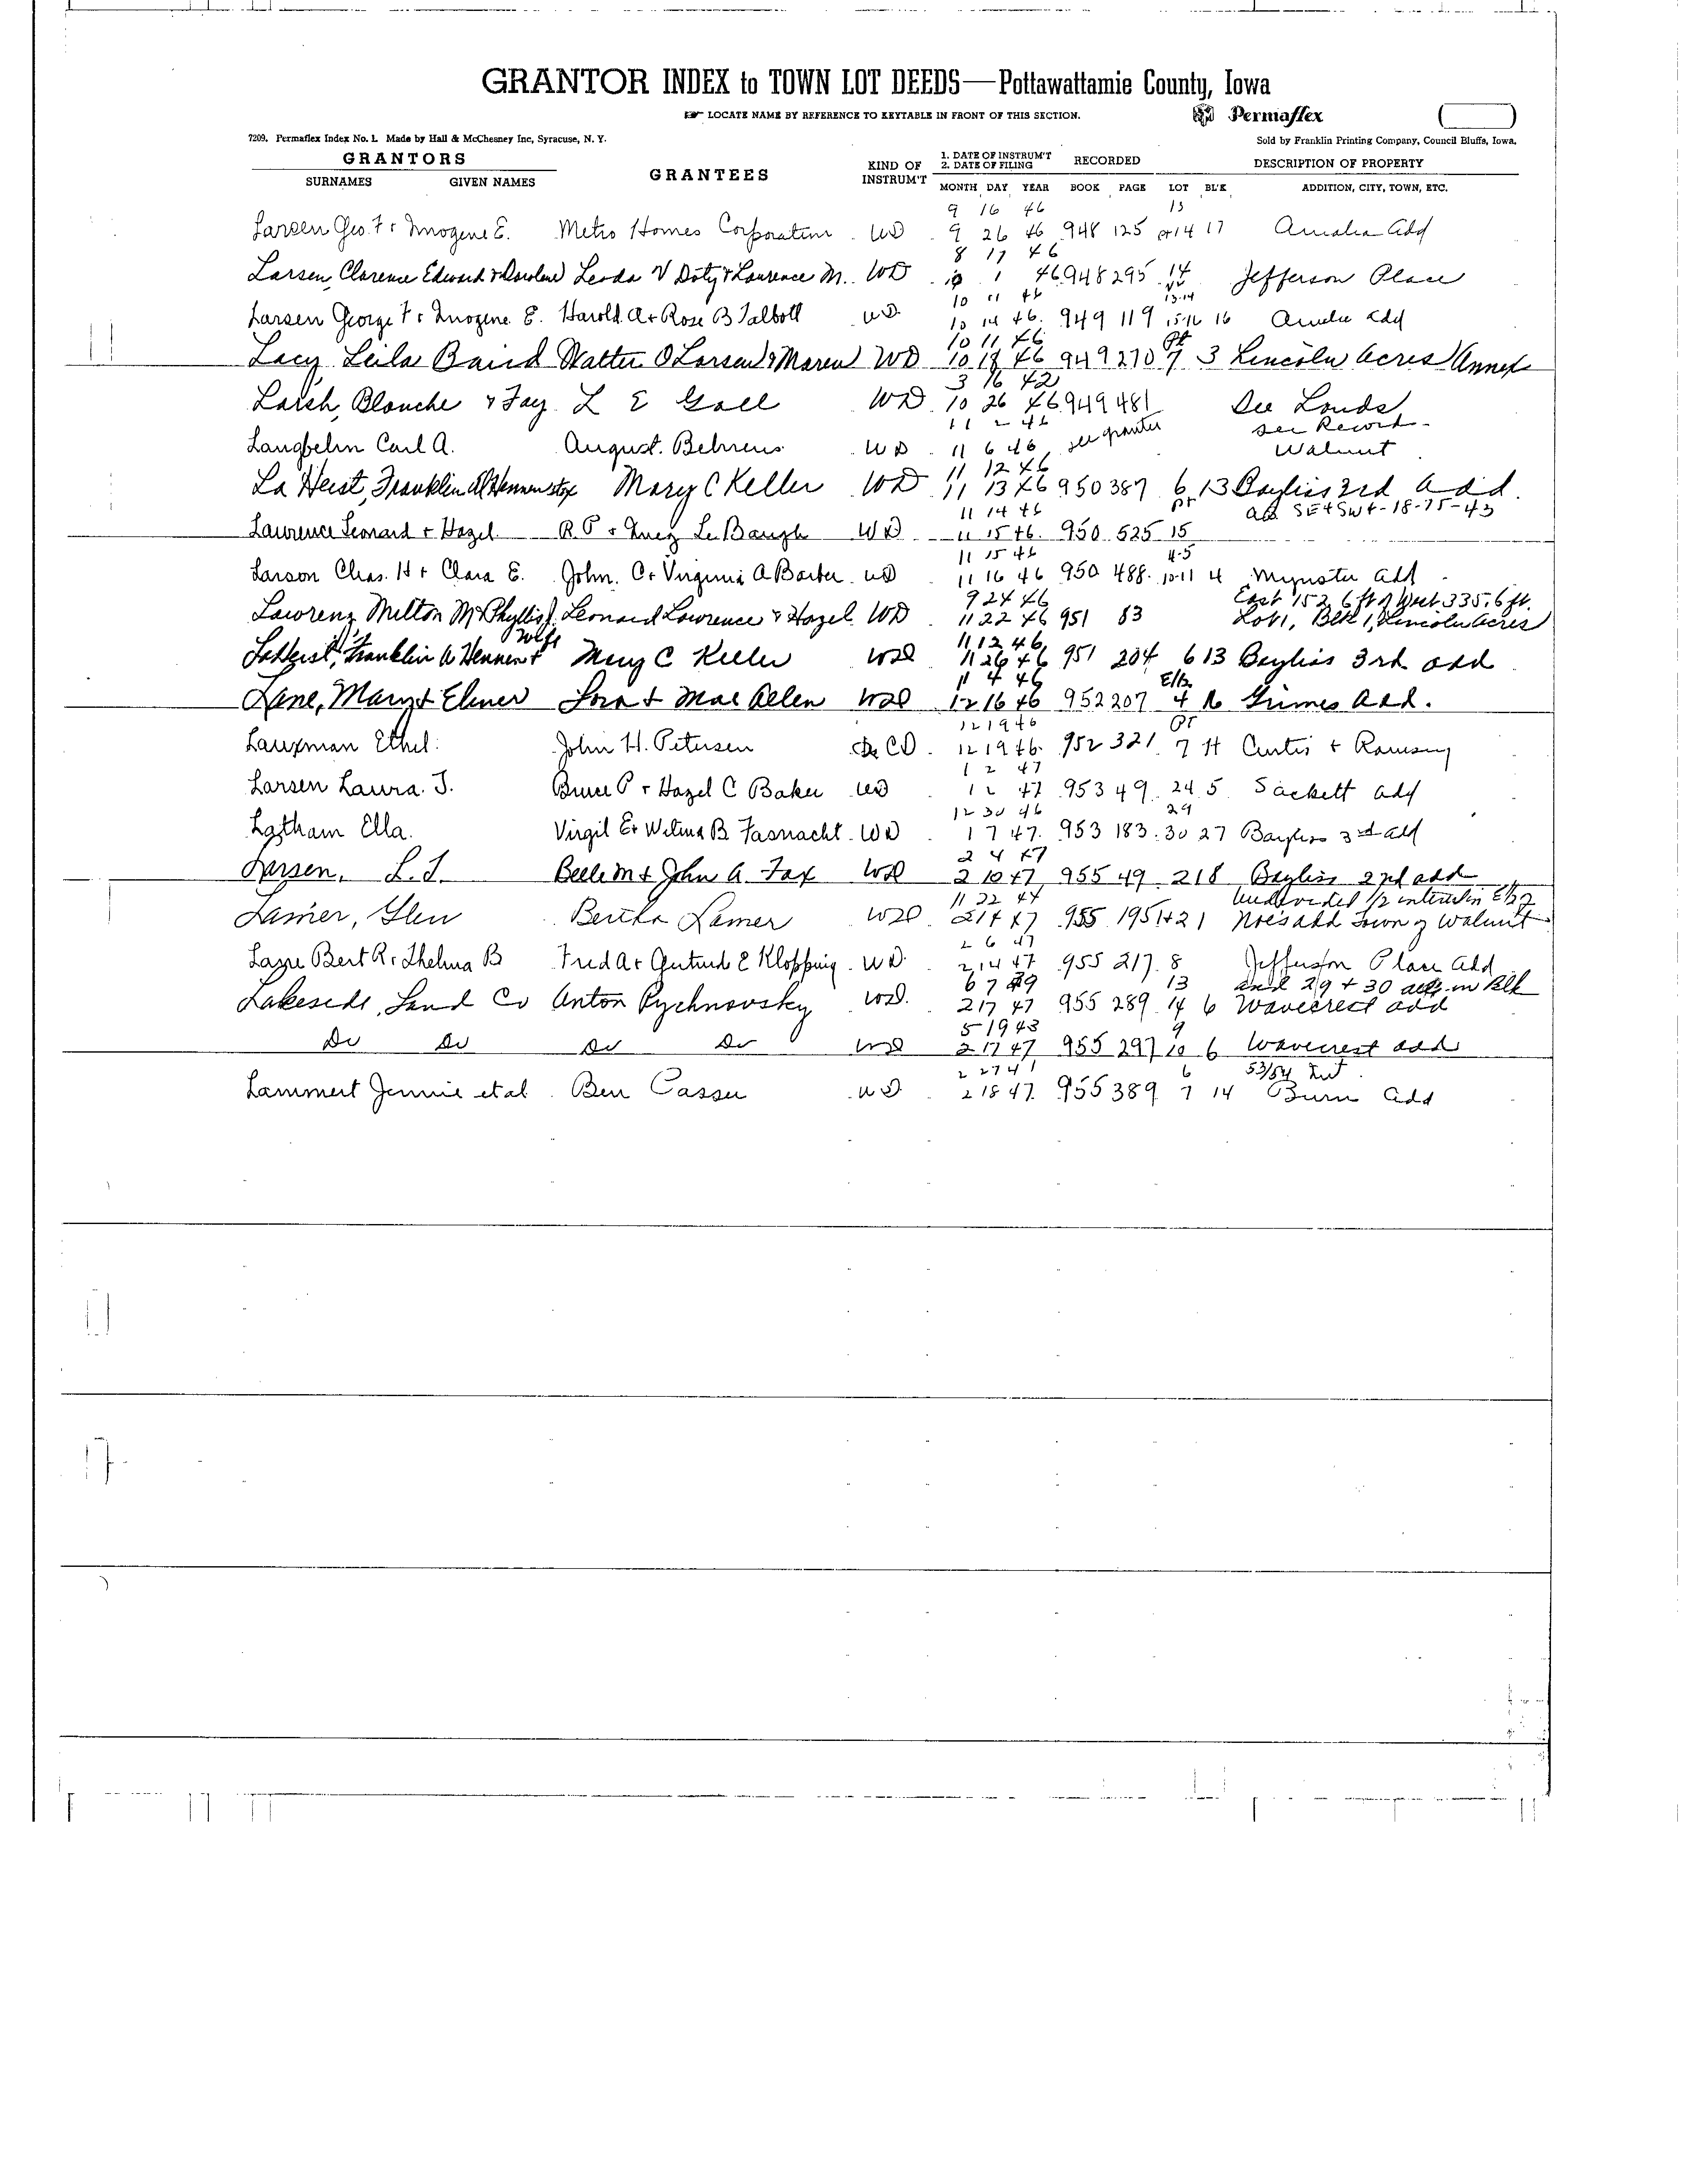 GRANTOR INDEX to TOWN LOT DEEDS—Pottawattamie County, Iowa
☞ LOCATE NAME BY REFERENCE TO KEYTABLE IN FRONT OF THIS SECTION.
Permaflex
7209. Permaflex Index No. 1. Made by Hall & McChesney Inc, Syracuse, N. Y.
Sold by Franklin Printing Company, Council Bluffs, Iowa.
GRANTORS
SURNAMES GIVEN NAMES
GRANTEES
KIND OF INSTRUM'T
1. DATE OF INSTRUM'T
2. DATE OF FILING
RECORDED
DESCRIPTION OF PROPERTY
MONTH DAY YEAR BOOK PAGE LOT BL'K ADDITION, CITY, TOWN, ETC.
9 16 46 13
Larsen Geo. F + Imogene E. Metro Homes Corporation WD 9 26 46 948 125 14 17 Amelia Add
8 17 46
Larsen, Clarence Edward & Leoda V Doty & Laurence M. WD 10 1 46 948 295 14 Jefferson Place
10 11 46 13-14
Larsen George F + Imogene E. Harold A + Rose B Talbott WD 10 14 46 949 119 15-16 16 Amelia Add
10 11 46 Pt
Lacy Leila Baird Walter O Larsen & Maren WD 10 18 46 949 270 7 3 Lincoln Acres Annex
3 16 42
Larsh, Blanche & Fay L E Gall WD 10 26 46 949 481 See Lands
11 2 46 see Record
Langbehn Carl A. August Behrens WD 11 6 46 see grantee Walnut
11 12 46
La Heist, Franklin Mary C Keller WD 11 13 46 950 387 6 13 Bayliss 3rd Add.
11 14 46 pt SE4SW4-18-75-43
Laurence Leonard + Hazel R.P + Inez Le Baugh WD 11 15 46 950 525 15
11 15 46 4-5
Larson Chas. H + Clara E. John C + Virginia A Barber WD 11 16 46 950 488 10-11 4 Mynster Add
9 24 46 East 152.6 ft of West 335.6 ft.
Lawrenz Milton M & Phyllis J. Leonard Lawrence & Hazel WD 11 22 46 951 83 Lot 1, Blk 1, Lincoln Acres
Wife 11 12 46
Franklin A Mary C Keller WD 11 26 46 951 204 6 13 Bayliss 3rd Add
11 4 46 E½
Lane, Mary + Elmer + Mae Allen WD 12 16 46 952 207 4 16 Grimes Add.
12 19 46 Pt
Lauxman Ethel John H. Petersen CD 12 19 46 952 321 7 H Curtis + Ramsey
1 2 47
Larsen Laura J. Bruce P + Hazel C Baker WD 1 2 47 953 49 24 5 Sackett Add
12 30 46 29
Latham Ella. Virgil E + Wilma B Fasnacht WD 1 7 47 953 183 30 27 Bayliss 3rd Add
2 4 47
Larsen, L.J. Belle M + John A. Fox WD 2 10 47 955 49 2 18 Bayliss 2nd Add
11 22 44 Undivided 1/2 interest in E½ 2
Lamer, Glen Bertha Lamer WD 2 14 47 955 195 1+2 1 Noe's Add Town of Walnut
2 6 47
Bert R + Thelma B Fred A + Gertrude E Klopping WD 2 14 47 955 217 8 Jefferson Place Add
6 7 13 and 29 + 30 all in Blk
Lakeside Land Co Anton Rychnovsky WD 2 17 47 955 289 14 6 Wavecrest Add
5 19 43 9
Do Do Do Do WD 2 17 47 955 297 10 6 Wavecrest Add
2 27 41 6 53/54 Int
Lammert Jennie et al Ben Casson WD 2 18 47 955 389 7 14 Burn Add